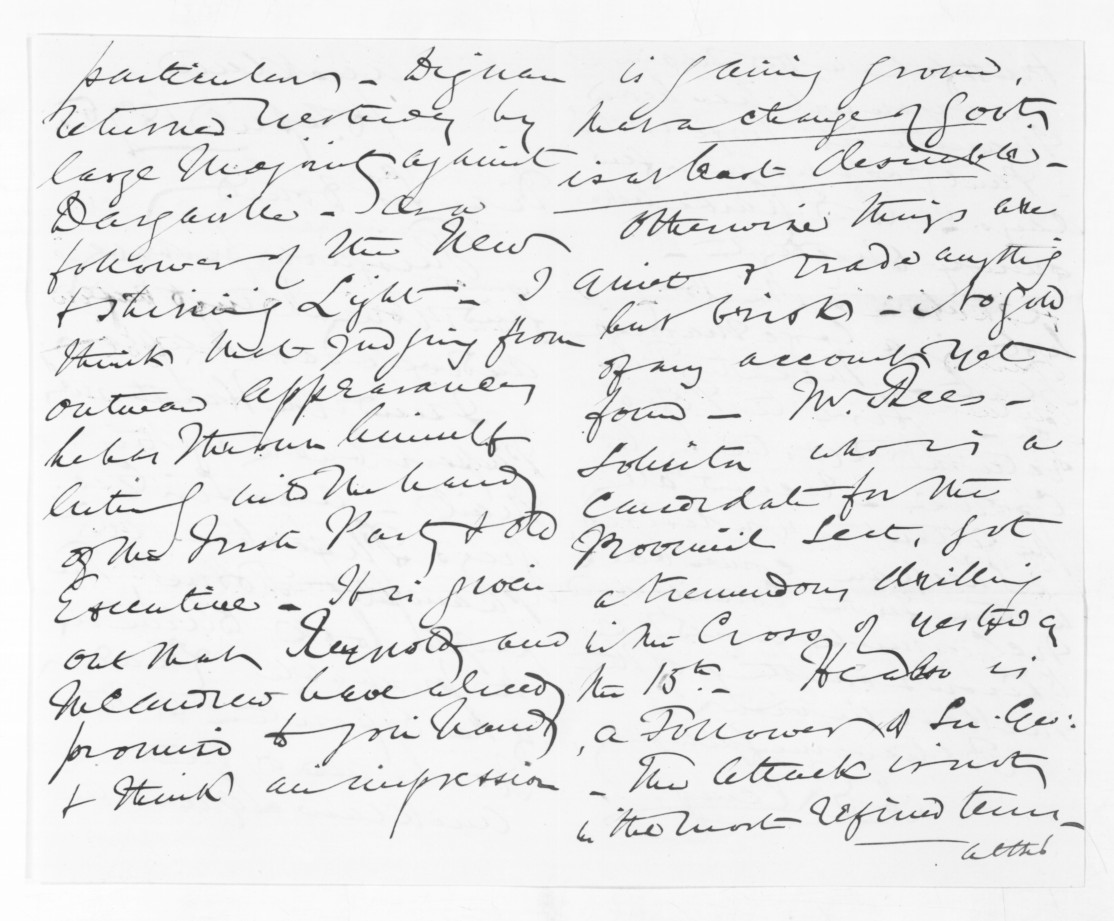 particulars - Dignan
returned yesterday by
large Majority against
Dargaville - as a
follower of the New
& Shining Light - I
think that judging from
outward appearances
he has thrown himself
entirely into the hands
of the Irish Party & old
Executive - It is given
out that Reynolds and
McAndrew have already
promised to join hands
& think an impression
is gaining ground,
that a change of Govt.
is at least desirable -
Otherwise things are
quiet & trade anything
but brisk - No gold
of any account yet
found - Mr. Rees -
Solicitor who is a
Candidate for the
Provincial Seat, got
a tremendous drilling
in the Cross of yesterday
the 15th - He also is
a Follower of Sir Geo:
- The attack is not
in the most refined terms -
altho'